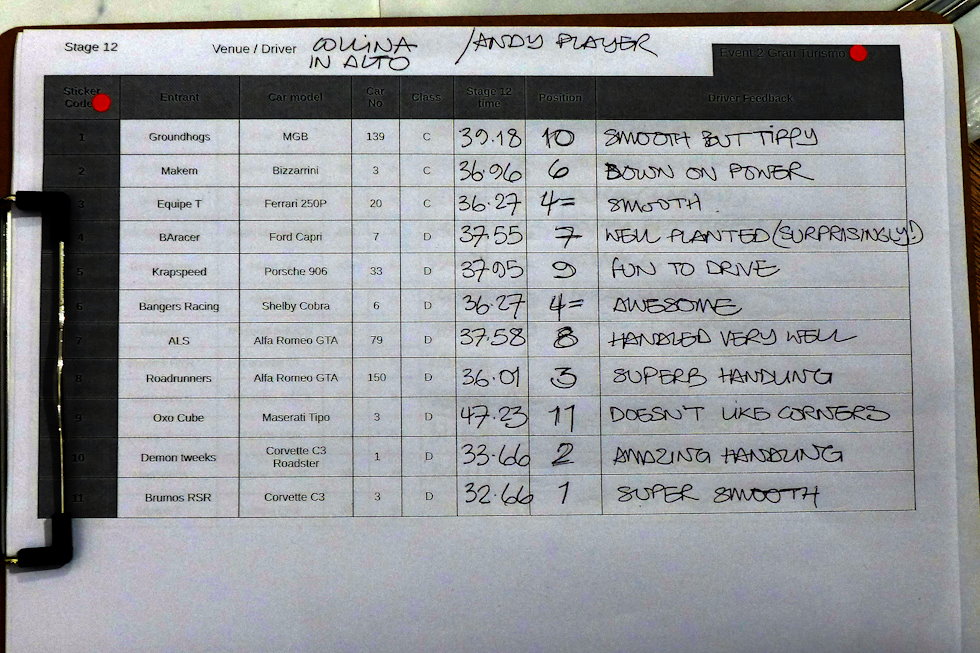 Stage 12 Venue / Driver COLLINA / ANDY PLAYER
IN ALTO
Event 2 Gran Turismo
Sticker Code Entrant Car model Car No Class Stage 12 time Position Driver Feedback
1 Groundhogs MGB 139 C 39.18 10 SMOOTH BUT TIPPY
2 Makem Bizzarrini 3 C 36.96 6 DOWN ON POWER
3 Equipe T Ferrari 250P 20 C 36.27 4= SMOOTH.
4 BAracer Ford Capri 7 D 37.55 7 WELL PLANTED (SURPRISINGLY!)
5 Krapspeed Porsche 906 33 D 37.95 9 FUN TO DRIVE
6 Bangers Racing Shelby Cobra 6 D 36.27 4= AWESOME
7 ALS Alfa Romeo GTA 79 D 37.58 8 HANDLED VERY WELL
8 Roadrunners Alfa Romeo GTA 150 D 36.01 3 SUPERB HANDLING
9 Oxo Cube Maserati Tipo 3 D 47.23 11 DOESN'T LIKE CORNERS
10 Demon tweeks Corvette C3 Roadster 1 D 33.66 2 AMAZING HANDLING
11 Brumos RSR Corvette C3 3 D 32.66 1 SUPER SMOOTH